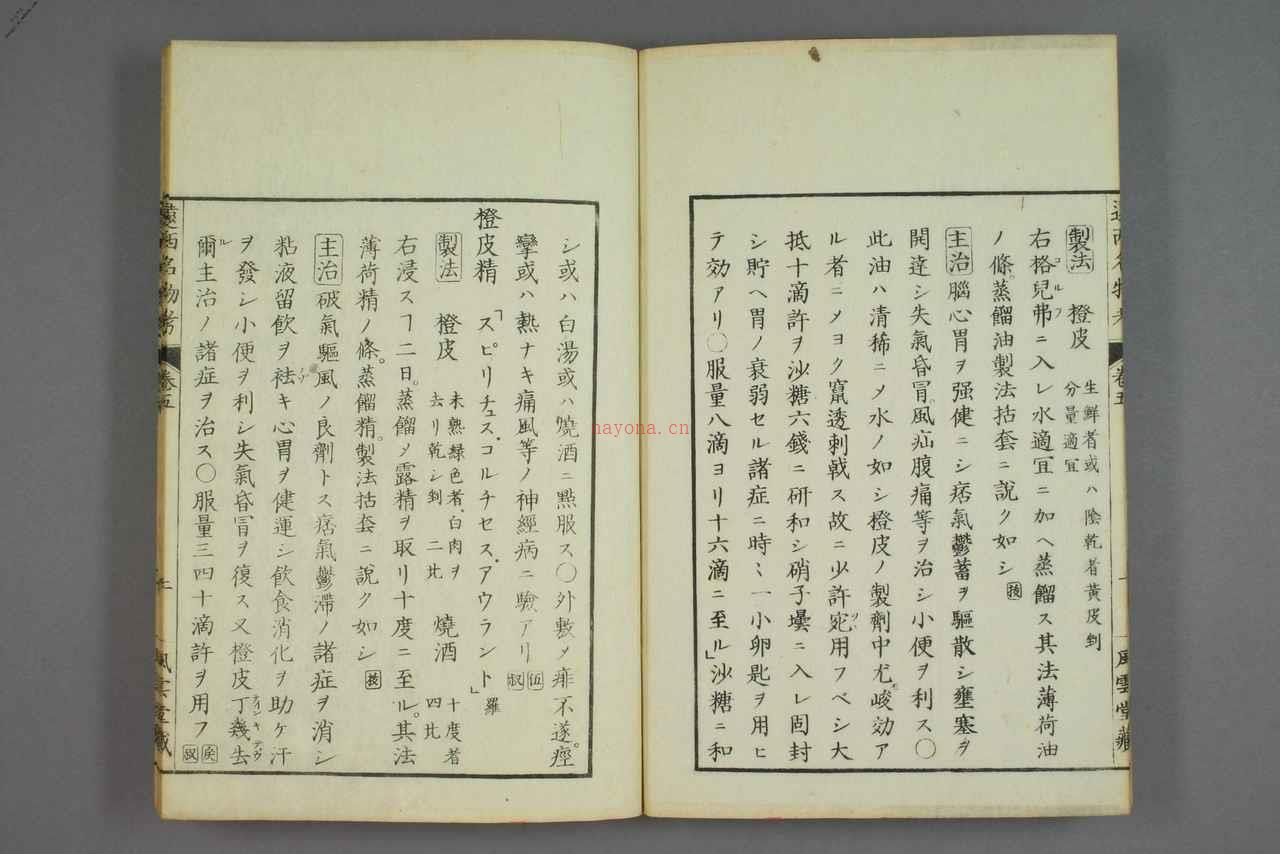 製法 橙皮 生鮮者或ハ陰乾者黃皮剉
分量適冝
右格兒弗ニ入レ水適冝ニ加ヘ蒸餾ス其法薄荷油
ノ條。蒸餾油製法括套ニ說ク如シ
主治 腦心胃ヲ强健ニシ痞氣鬱蓄ヲ驅散シ壅塞ヲ
開達シ失氣昏冒。風疝腹痛等ヲ治シ小便ヲ利ス〇
此油ハ清稀ニメ水ノ如シ橙皮ノ製劑中尤峻効ア
ル者ニメヨク竄透刺戟ス故ニ少許宛用フベシ大
抵十滴許ヲ沙糖六錢ニ研和シ硝子壜ニ入レ固封
シ貯ヘ胃ノ衰弱セル諸症ニ時〻一小卵匙ヲ用ヒ
テ効アリ〇服量八滴ヨリ十六滴ニ至ル」沙糖ニ和
風雲堂藏
シ或ハ白湯或ハ燒酒ニ㸃服ス〇外敷メ痱不遂。痙
攣或ハ熱ナキ痛風等ノ神經病ニ驗アリ
橙皮精 「スピリチュス.コルチセス.アウラント」羅
製法 橙皮 未熟綠色者.白肉ヲ
去リ乾シ剉 二比 燒酒 十度者
四比
右浸スヿ二日。蒸餾メ露精ヲ取リ十度ニ至ル。其法
薄荷精ノ條。蒸餾精。製法括套ニ說ク如シ
主治 破氣驅風ノ良劑トス痞氣鬱滯ノ諸症ヲ消シ
粘液留飲ヲ袪キ心胃ヲ健運シ飲食消化ヲ助ケ汗
ヲ發シ小便ヲ利シ失氣昏冒ヲ復ス又橙皮丁幾去
爾主治ノ諸症ヲ治ス〇服量三四十滴許ヲ用フ
遠西名物考 卷五